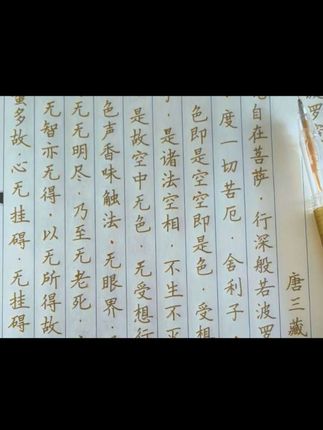 波罗
唐三藏
自在菩萨·行深般若波罗
度一切苦厄·舍利子·
色即是空空即是色·受想
·是诸法空相·不生不
是故空中无色 无受想行
色声香味触法·无眼界·
无无明尽·乃至无老死·
无智亦无得·以无所得故
多故·心无挂碍·无挂碍